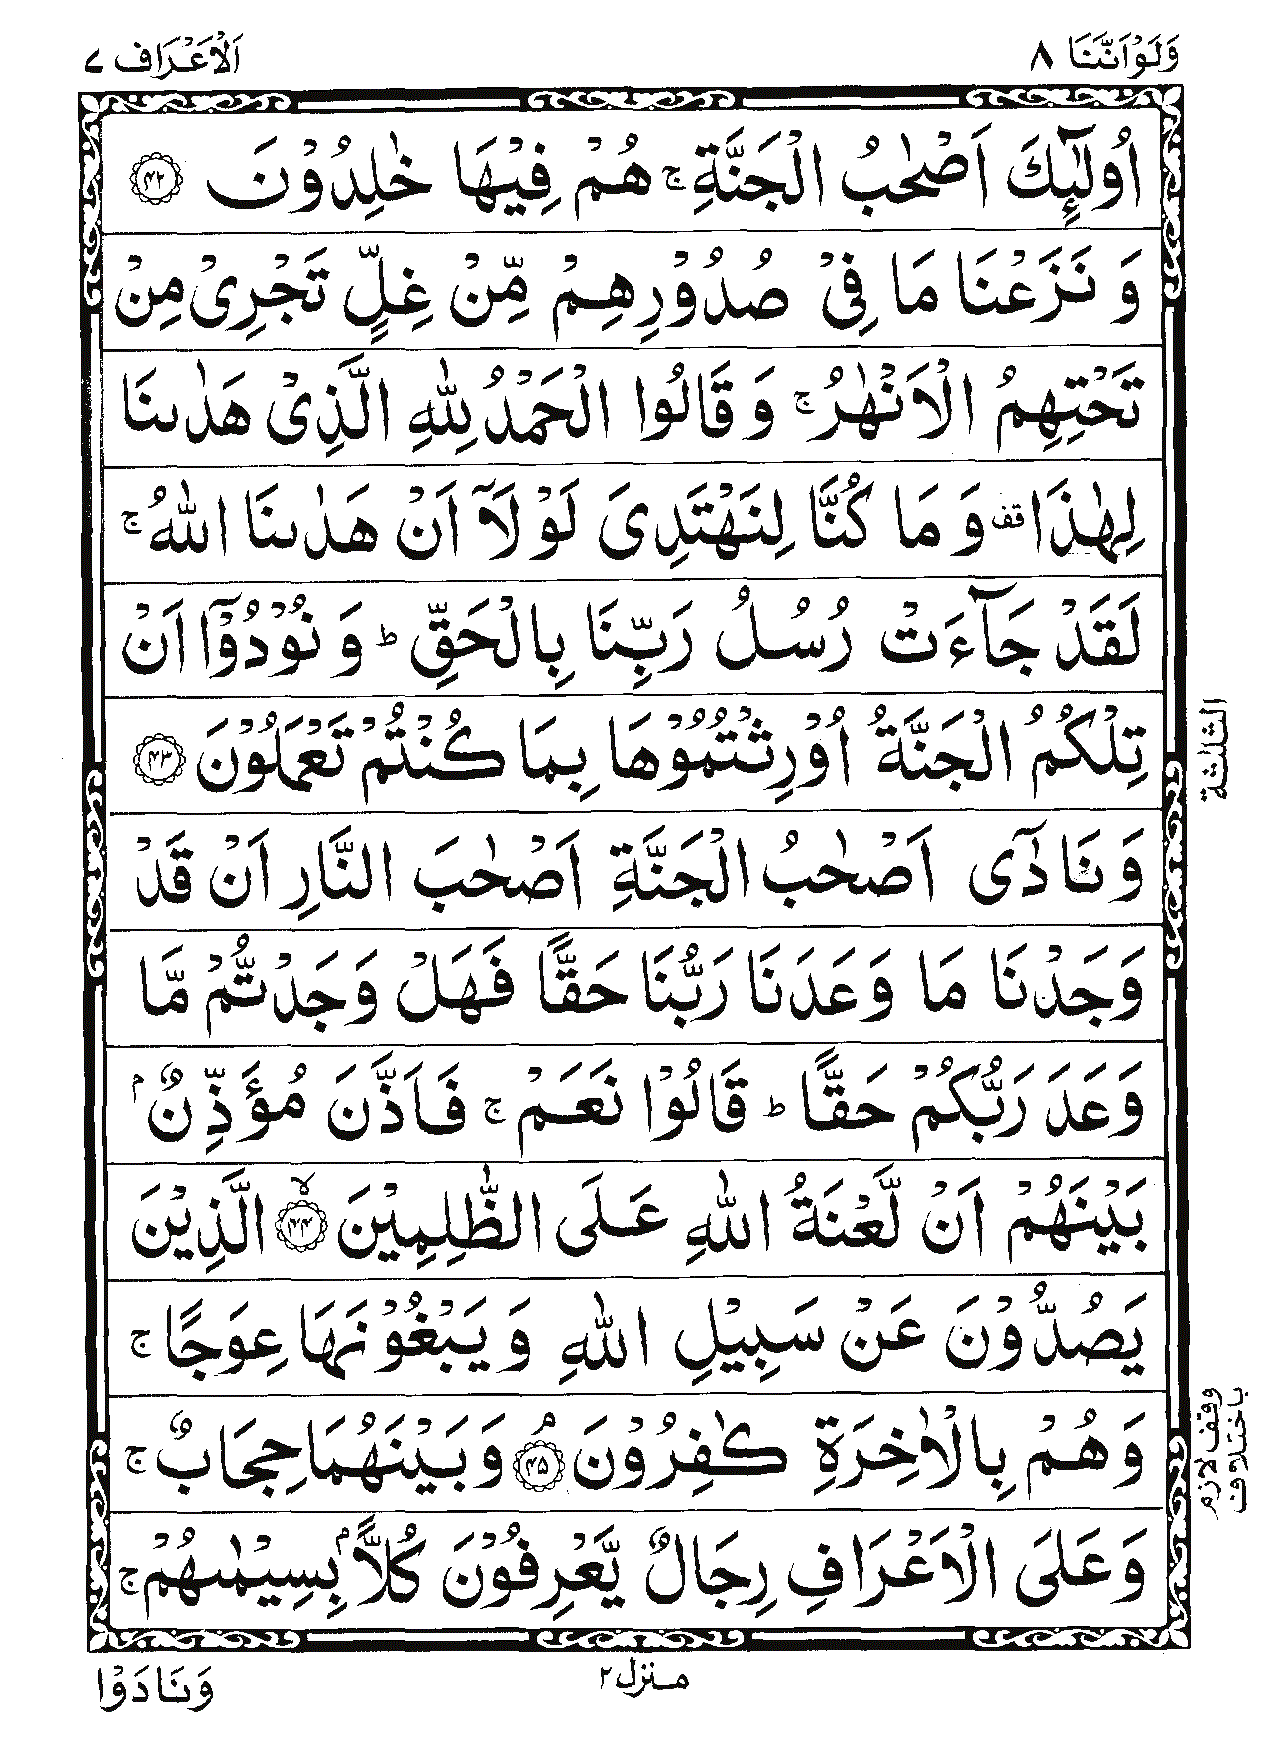 وَلَوْاَنَّنَا ٨
اَلْاَعْرَاف ٧
اُولٰٓئِكَ اَصْحٰبُ الْجَنَّةِ ۚ هُمْ فِيْهَا خٰلِدُوْنَ ﴿۴۲﴾
وَ نَزَعْنَا مَا فِىْ صُدُوْرِهِمْ مِّنْ غِلٍّ تَجْرِىْ مِنْ
تَحْتِهِمُ الْاَنْهٰرُ ۚ وَ قَالُوا الْحَمْدُ لِلّٰهِ الَّذِىْ هَدٰىنَا
لِهٰذَا قف وَ مَا كُنَّا لِنَهْتَدِىَ لَوْلَاۤ اَنْ هَدٰىنَا اللّٰهُ ۚ
لَقَدْ جَآءَتْ رُسُلُ رَبِّنَا بِالْحَقِّ ؕ وَ نُوْدُوْۤا اَنْ
تِلْكُمُ الْجَنَّةُ اُوْرِثْتُمُوْهَا بِمَا كُنْتُمْ تَعْمَلُوْنَ ﴿۴۳﴾
الثلثة
وَ نَادٰۤى اَصْحٰبُ الْجَنَّةِ اَصْحٰبَ النَّارِ اَنْ قَدْ
وَجَدْنَا مَا وَعَدَنَا رَبُّنَا حَقًّا فَهَلْ وَجَدْتُّمْ مَّا
وَعَدَ رَبُّكُمْ حَقًّا ؕ قَالُوْا نَعَمْ ۚ فَاَذَّنَ مُؤَذِّنٌۢ
بَيْنَهُمْ اَنْ لَّعْنَةُ اللّٰهِ عَلَى الظّٰلِمِيْنَ ۙ﴿۴۴﴾ الَّذِيْنَ
يَصُدُّوْنَ عَنْ سَبِيْلِ اللّٰهِ وَ يَبْغُوْنَهَا عِوَجًا ۚ
وَ هُمْ بِالْاٰخِرَةِ كٰفِرُوْنَ ۘ﴿۴۵﴾ وَ بَيْنَهُمَا حِجَابٌ ۚ
وقف لازم
باختلاف
وَ عَلَى الْاَعْرَافِ رِجَالٌ يَّعْرِفُوْنَ كُلًّاۢ بِسِيْمٰىهُمْ ۚ
منزل ۲
وَ نَادَوْا